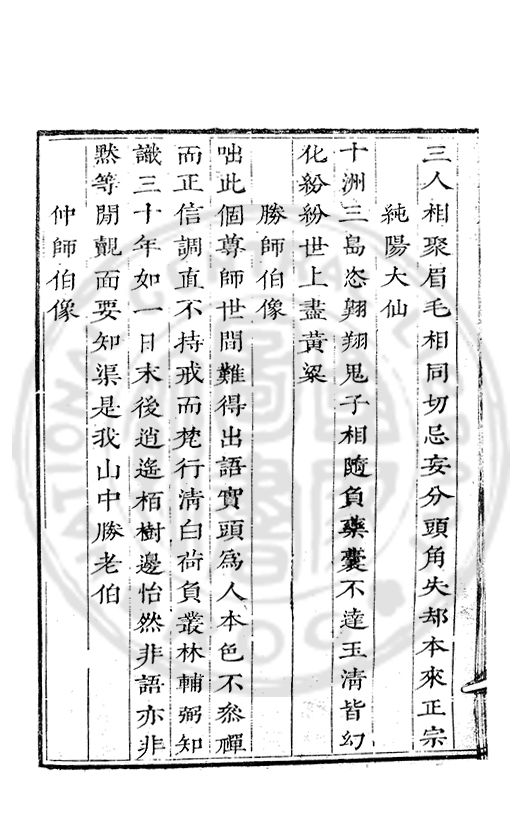 三人相聚眉毛相同切忌妄分頭角失却本來正宗
純陽大仙
十洲三島恣翱翔鬼子相隨負藥囊不達玉清皆幻
化紛紛世上盡黃粱
勝師伯像
咄此個尊師世間難得出語實頭為人本色不叅禪
而正信調直不持戒而梵行清白荷負叢林輔弼知
識三十年如一日末後逍遙栢樹邊怡然非語亦非
黙等閒覿面要知渠是我山中勝老伯
仲師伯像